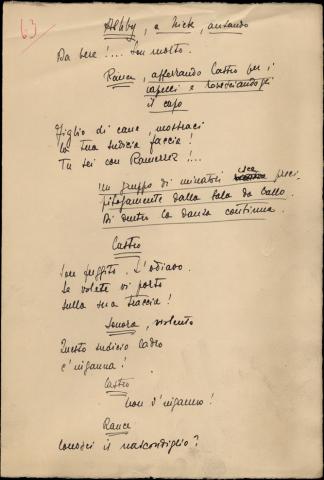 63
Ashby, a Nick, entrando
Da bere!... Son morto.
Rance, afferrando Castro per i
capelli e rovesciandogli
il capo
Figlio di cane, mostraci
la tua sudicia faccia!
Tu sei con Ramerrez!...
Un gruppo di minatori esce preci
pitosamente dalla Sala da ballo.
Di dentro la danza continua.
Castro
Son fuggito. L'odiavo.
Se volete vi porto
sulla sua traccia!
Sonora, violento
Questo sudicio ladro
c'inganna!
Castro
Non v'inganno!
Rance
Conosci il nascondiglio?